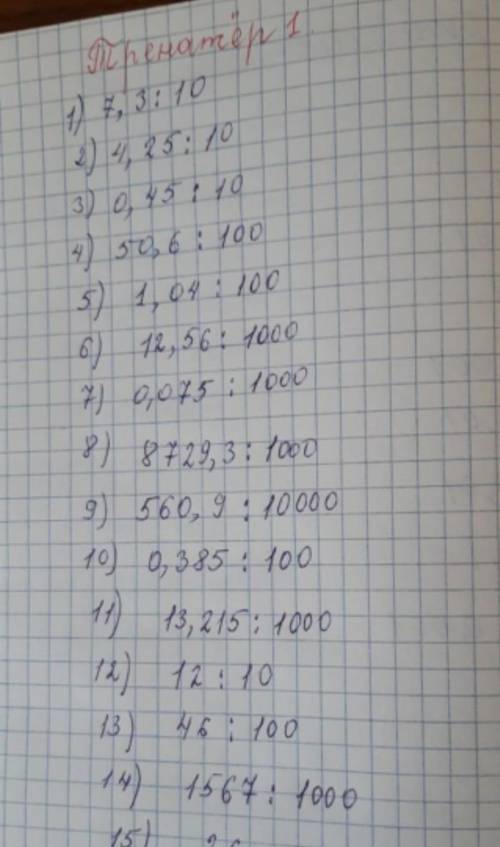 Тренатёр 1
1) 7,3 : 10
2) 4,25 : 10
3) 0,45 : 10
4) 50,6 : 100
5) 1,04 : 100
6) 12,56 : 1000
7) 0,075 : 1000
8) 8729,3 : 1000
9) 560,9 : 10000
10) 0,385 : 100
11) 13,215 : 1000
12) 12 : 10
13) 46 : 100
14) 1567 : 1000
15)